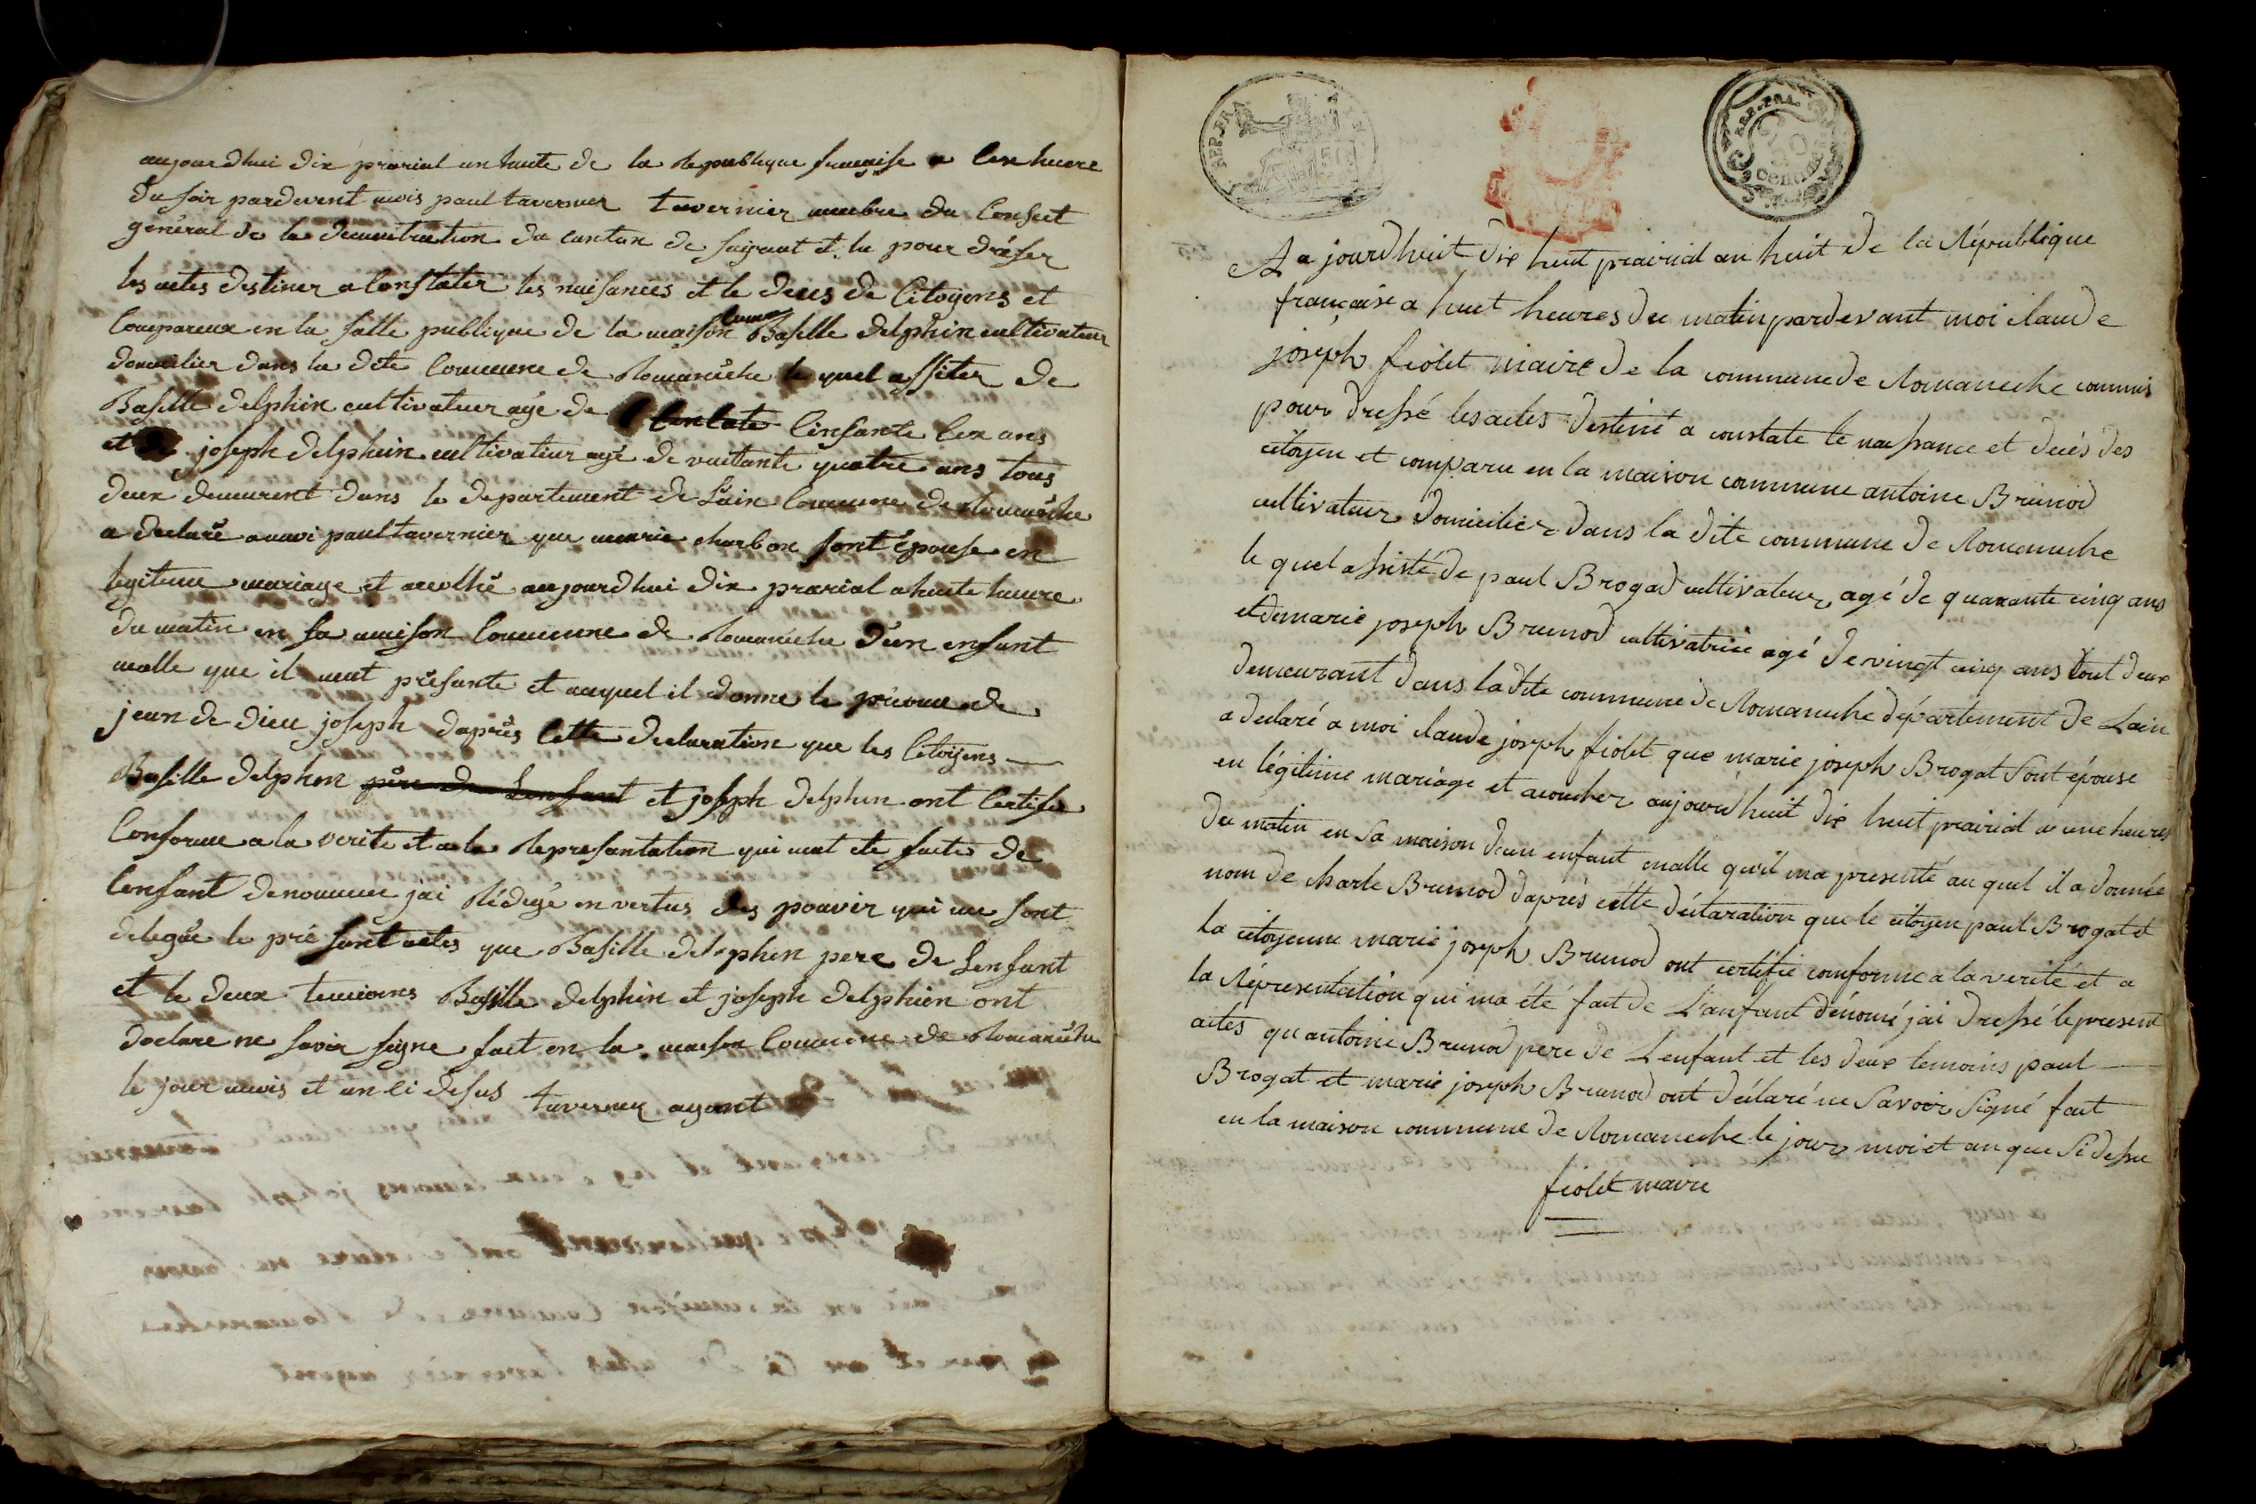 aujourdhui dix prairial an huite de la Republique francaise a cex heure
du soir pardevent mois paul tavernier tavernier membre du Conseit
général de la decmintration du canton de et lu pour dréser
les actes destiner a Constater les naisances et le deces de Citoyens et
Compareux en la salle publique de la maison Comune Basille delphin cultivateur
domicilier dans la dite Commune de Romanêche le quel assiter de
Basille delphin cultivateur agé de Cinsante Cex ans
et de joseph delphin cultivateur agé de vuitante quatre ans tous
deux demeurent dans le departement de Lain Commune de Romanêche
a declaré a moi paul tavernier que marie charbon sont épouse en
legitime mariage et acolhé aujourdhui dix prarial a huite heure
du matin en sa maison Commune de Romanêche d'un enfant
malle que il mat présante et auquel il donne le prénom de
jean de dieu joseph daprês Cette declaration que les Citoyens
Basille delphin père de Lenfant et joseph delphin ont Certifie
Conforme a la verité et a la Represantation qui mat ete faite de
Lenfant denommer jai Rédigé en vertus des pouvir qui me sont
delegúe le pré sent actes que Basille delphin pere de Lenfant
et le deux temoins Basille delphin et joseph delphin ont
declare ne savoir signe fait en la maison Commune de Romanêche
le jour mois et an ci desus tavernier agant
REP. FRA.
REP. FRA.
50
centimes
Au jourdhuit dix huit prairial an huit de la République
française a huit heures du matin pardevant moi claude
joseph fiolet maire de la commune de Romaneche commis
pour dressé les actes destiné a constate le naissance et decés des
citoyen et comparu en la maison commune antoine Brunod
cultivateur domicilier dans la dite commune de Romaneche
le quel assisté de paul Brogad cultivateur agé de quarante cinq ans
et de marie joseph Brunod cultivatrice agé de vingt cinq ans tout deux
demeurant dans la dite commune de Romaneche département de Lain
a declaré a moi claude joseph fiolet que marie joseph Brogat sont épouse
en légitime mariage et acoucher aujourdhuit dix huit prairial a une heures
du matin en sa maison d'un enfant malle qu'il ma presenté au quel il a donnée
nom de charle Brunod daprès cette déclaration que le citoyen paul Brogat et
la citoyenne marie joseph Brunod ont certifié comforme a la verité et a
la Répresentation qui ma été fait de L'anfant dénomé jai dressé le present
actes qu'antoine Brunod pere de Lenfant et les deux temoins paul
Brogat et marie joseph Brunod ont déclaré ne savoir signé fait
en la maison commune de Romaneche le jour moi et an que sidessu
fiolet maire